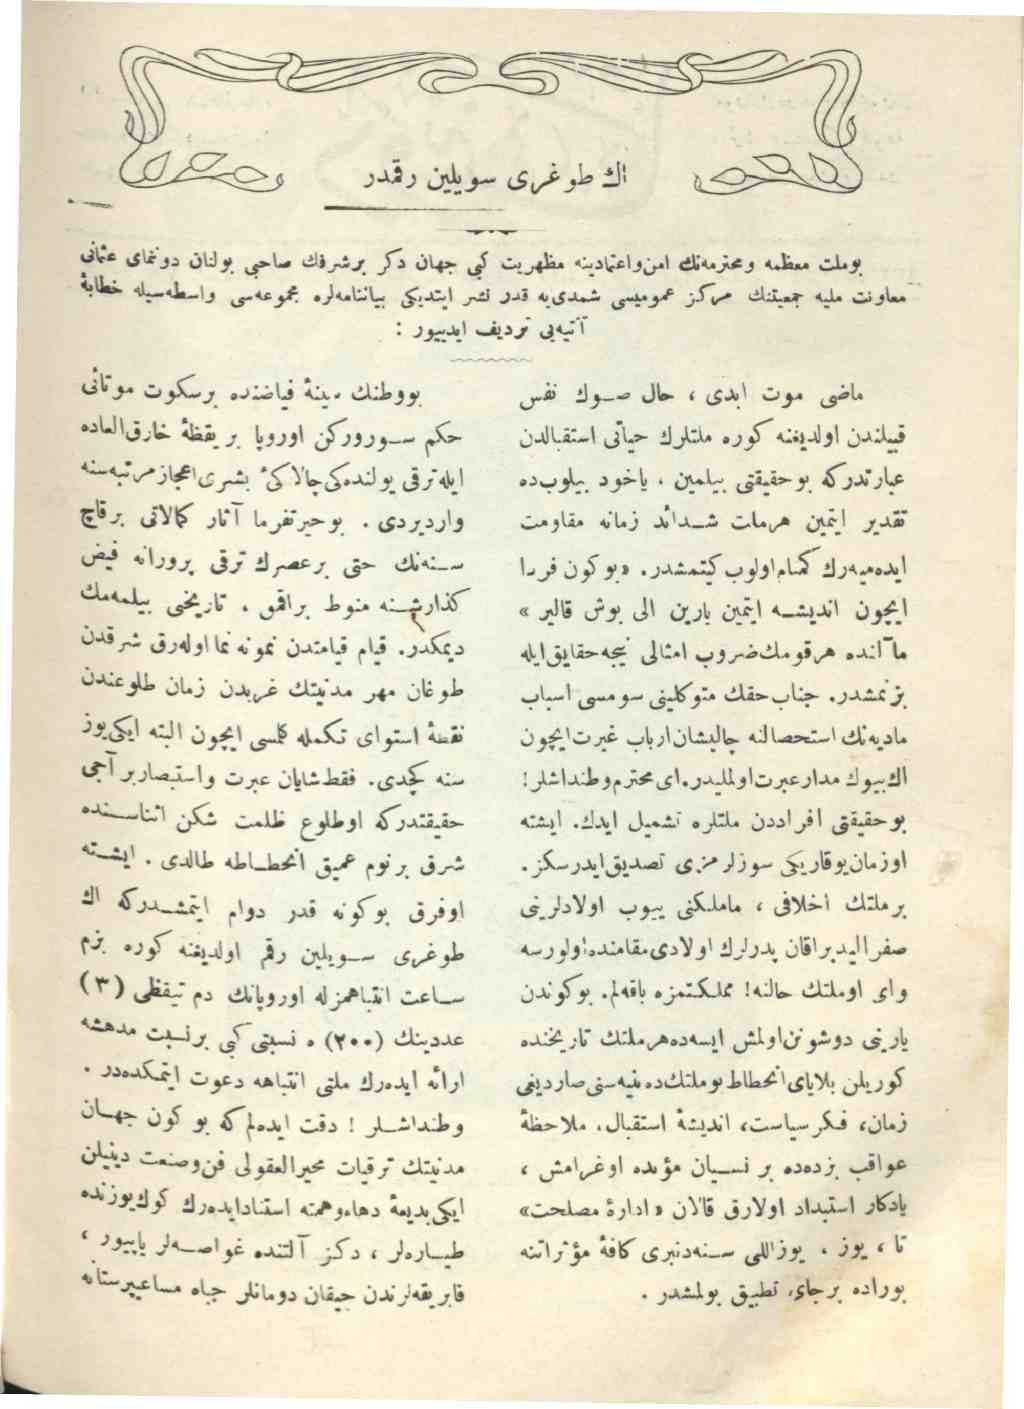 اك طوغرى سويلين رقمدر
بوملت معظمه ومحترمه‌نك امن‌واعتمادينه مظهريت كبى جهان دكر برشرفك صاحبى بولنان دونماى عثمانى
معاونت مليه جمعيتنك مركز عموميسى شمدى‌يه قدر نشر ايتديكى بياننامه‌لره مجموعه‌سى واسطه‌سيله خطابۀ
آتيه‌يى ترديف ايدييور :
ماضى موت ابدى ، حال صـوك نفس
قبيلندن اولديغنه كوره ملتلرك حياتى استقبالدن
عبارتدركه بوحقيقتى بيلمين ، ياخود بيلوب‌ده
تقدير ايتمين هرملت شـدائد زمانه مقاومت
ايده‌ميه‌رك كمنام‌اولوب كيتمشدر. «بوكون فردا
ايچون انديشـه ايتمين يارين الى بوش قالير »
مآلنده هرقومك‌ضروب امثالى نيجه‌حقايق‌ايله
بزنمشدر. جناب‌حقك متوكلينى سومسى اسباب
ماديه‌نك استحصالنه چاليشان‌ارباب غيرت‌ايچون
اك‌بيوك مدارعبرت‌اولمليدر.اى‌محترم‌وطنداشلر!
بوحقيقتى افراددن ملتلره تشميل ايدك. ايشته
اوزمان‌يوقاريكى سوزلرمزى تصديق‌ايدرسكز.
برملتك اخلافى ، ماملكنى ييوب اولادلرينى
صفراليدبراقان پدرلرك اولادى‌مقامنده‌اولورسه
واى اوملتك حالنه! مملكتمزه باقه‌لم. بوكوندن
يارينى دوشونن‌اولمش ايسه‌ده‌هرملتك تاريخنده
كوريلن بلاياى‌انحطاط‌بوملتك‌ده‌منيه‌سنى‌صارديغى
زمان، فكرسياست، انديشۀ استقبال، ملاحظۀ
عواقب بزده‌ده بر نسـيان مؤبده اوغرامش ،
يادكار استبداد اولارق قالان « ادارۀ مصلحت»
تا ، يوز ، يوزاللى سـنه‌دنبرى كافۀ مؤثراتنه
بوراده برجاى تطبيق بولمشدر .
بووطنك سينۀ فياضنده برسكوت موتائى
حكم سـوروركن اوروپا بر يقظۀ خارق‌العاده
ايله‌ترقى يولنده‌كى‌چالاكئ بشرى‌اعجازمرتبه‌سنه
وارديردى . بوحيرتفرما آثار كمالاتى برقاچ
سـنه‌نك حتى برعصرك ترقى پرورانه فيض
كذارشـنه منوط براقمق ، تاريخنى بيلمه‌مك
ديمكدر. قيام قيامتدن نمونه نما اوله‌رق شرقدن
طوغان مهر مدنيتك غربدن زمان طلوعندن
نقطۀ استواى تكمله كلسى ايچون البته ايكى‌يوز
سنه كچدى. فقط‌شايان عبرت واستبصاربر آجى
حقيقتدركه اوطلوع ظلمت شكن اثناسـنده
شرق برنوم عميق انحطـاطه طالدى . ايشـته
اوفرق بوكونه قدر دوام ايتمشـدركه اك
طوغرى سـويلين رقم اولديغنه كوره بزم
سـاعت انتباهمزله اوروپانك دم تيقظى (٣)
عددينك (٢٠٠) ه نسبتى كبى برنسبت مدهشه
ارائه ايده‌رك ملتى انتباهه دعوت ايتمكده‌در .
وطنداشـلر ! دقت ايده‌لم‌كه بو كون جهـان
مدنيتك ترقيات محيرالعقولى فن‌وصنعت دينيلن
ايكى‌بديعۀ دهاءوهمته استنادايده‌رك كوك‌يوزنده
طيـاره‌لر ، دكـز آلتنده غواصـه‌لر ياپيور ،
فابريقه‌لرندن چيقان دومانلر جباه مساعيپرستانه